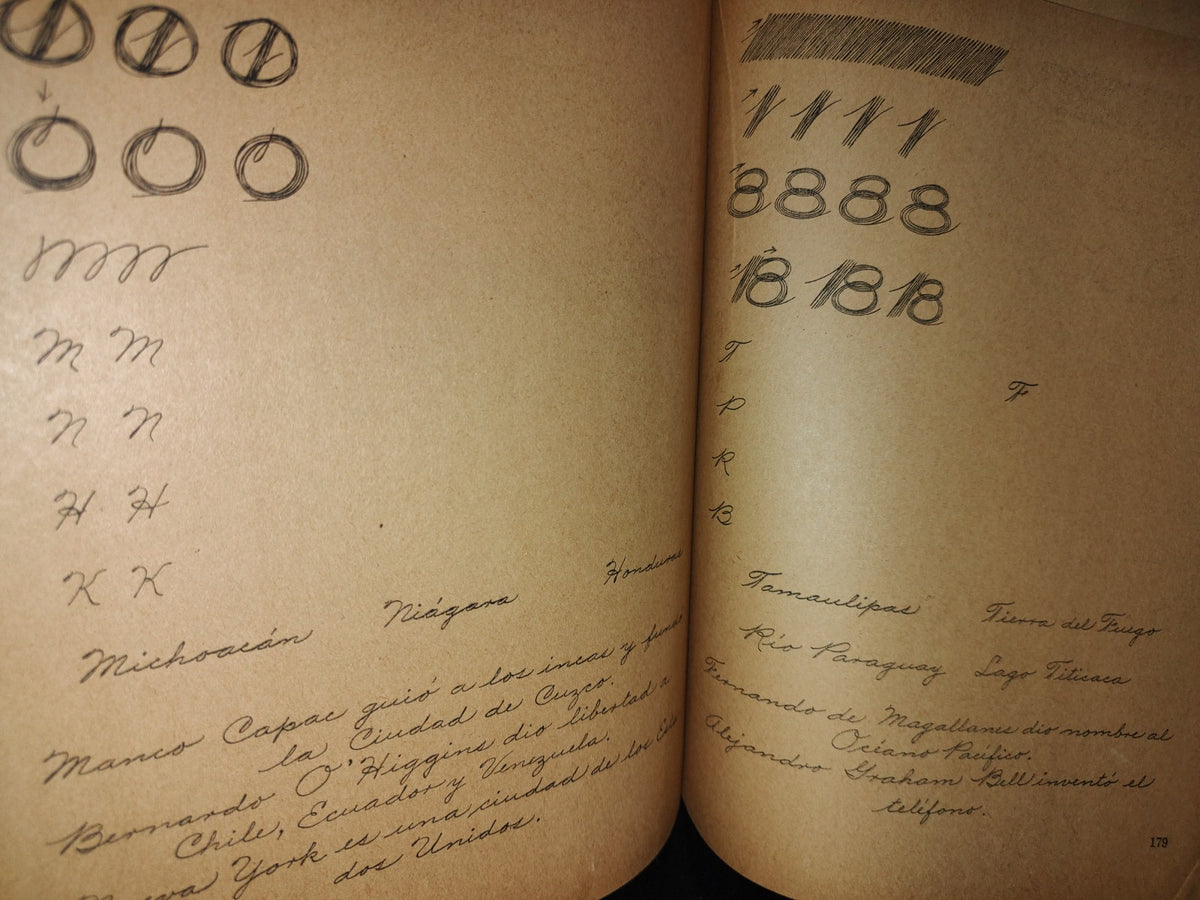 1 1 1
O O O
M M
N N
H H
K K
Michoacán Niágara Honduras
Manco Capac guió a los incas y fun
la Ciudad de Cuzco.
Bernardo O'Higgins dio libertad a
Chile, Ecuador y Venezuela.
York es una ciudad de los Esta
dos Unidos.
1 1 1 1
8 8 8 8
18 18 18
T
F
P
R
B
Tamaulipas Tierra del Fuego
Río Paraguay Lago Titicaca
Fernando de Magallanes dio nombre al
Océano Pacífico.
Alejandro Graham Bell inventó el
teléfono.
179